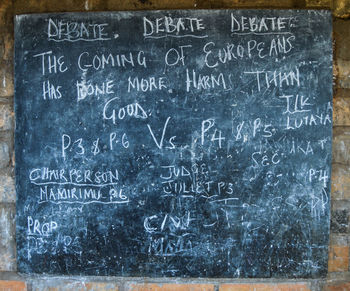 DEBATE. DEBATE DEBATE
THE COMING OF EUROPEANS
HAS DONE MORE HARM THAN
GOOD.
P.3 & P.6 Vs P.4 & P.5
CHAIRPERSON
NAMIRIMU P.6
PROP
JUDGE
JULIET P.3
C/W
SEC
P.4